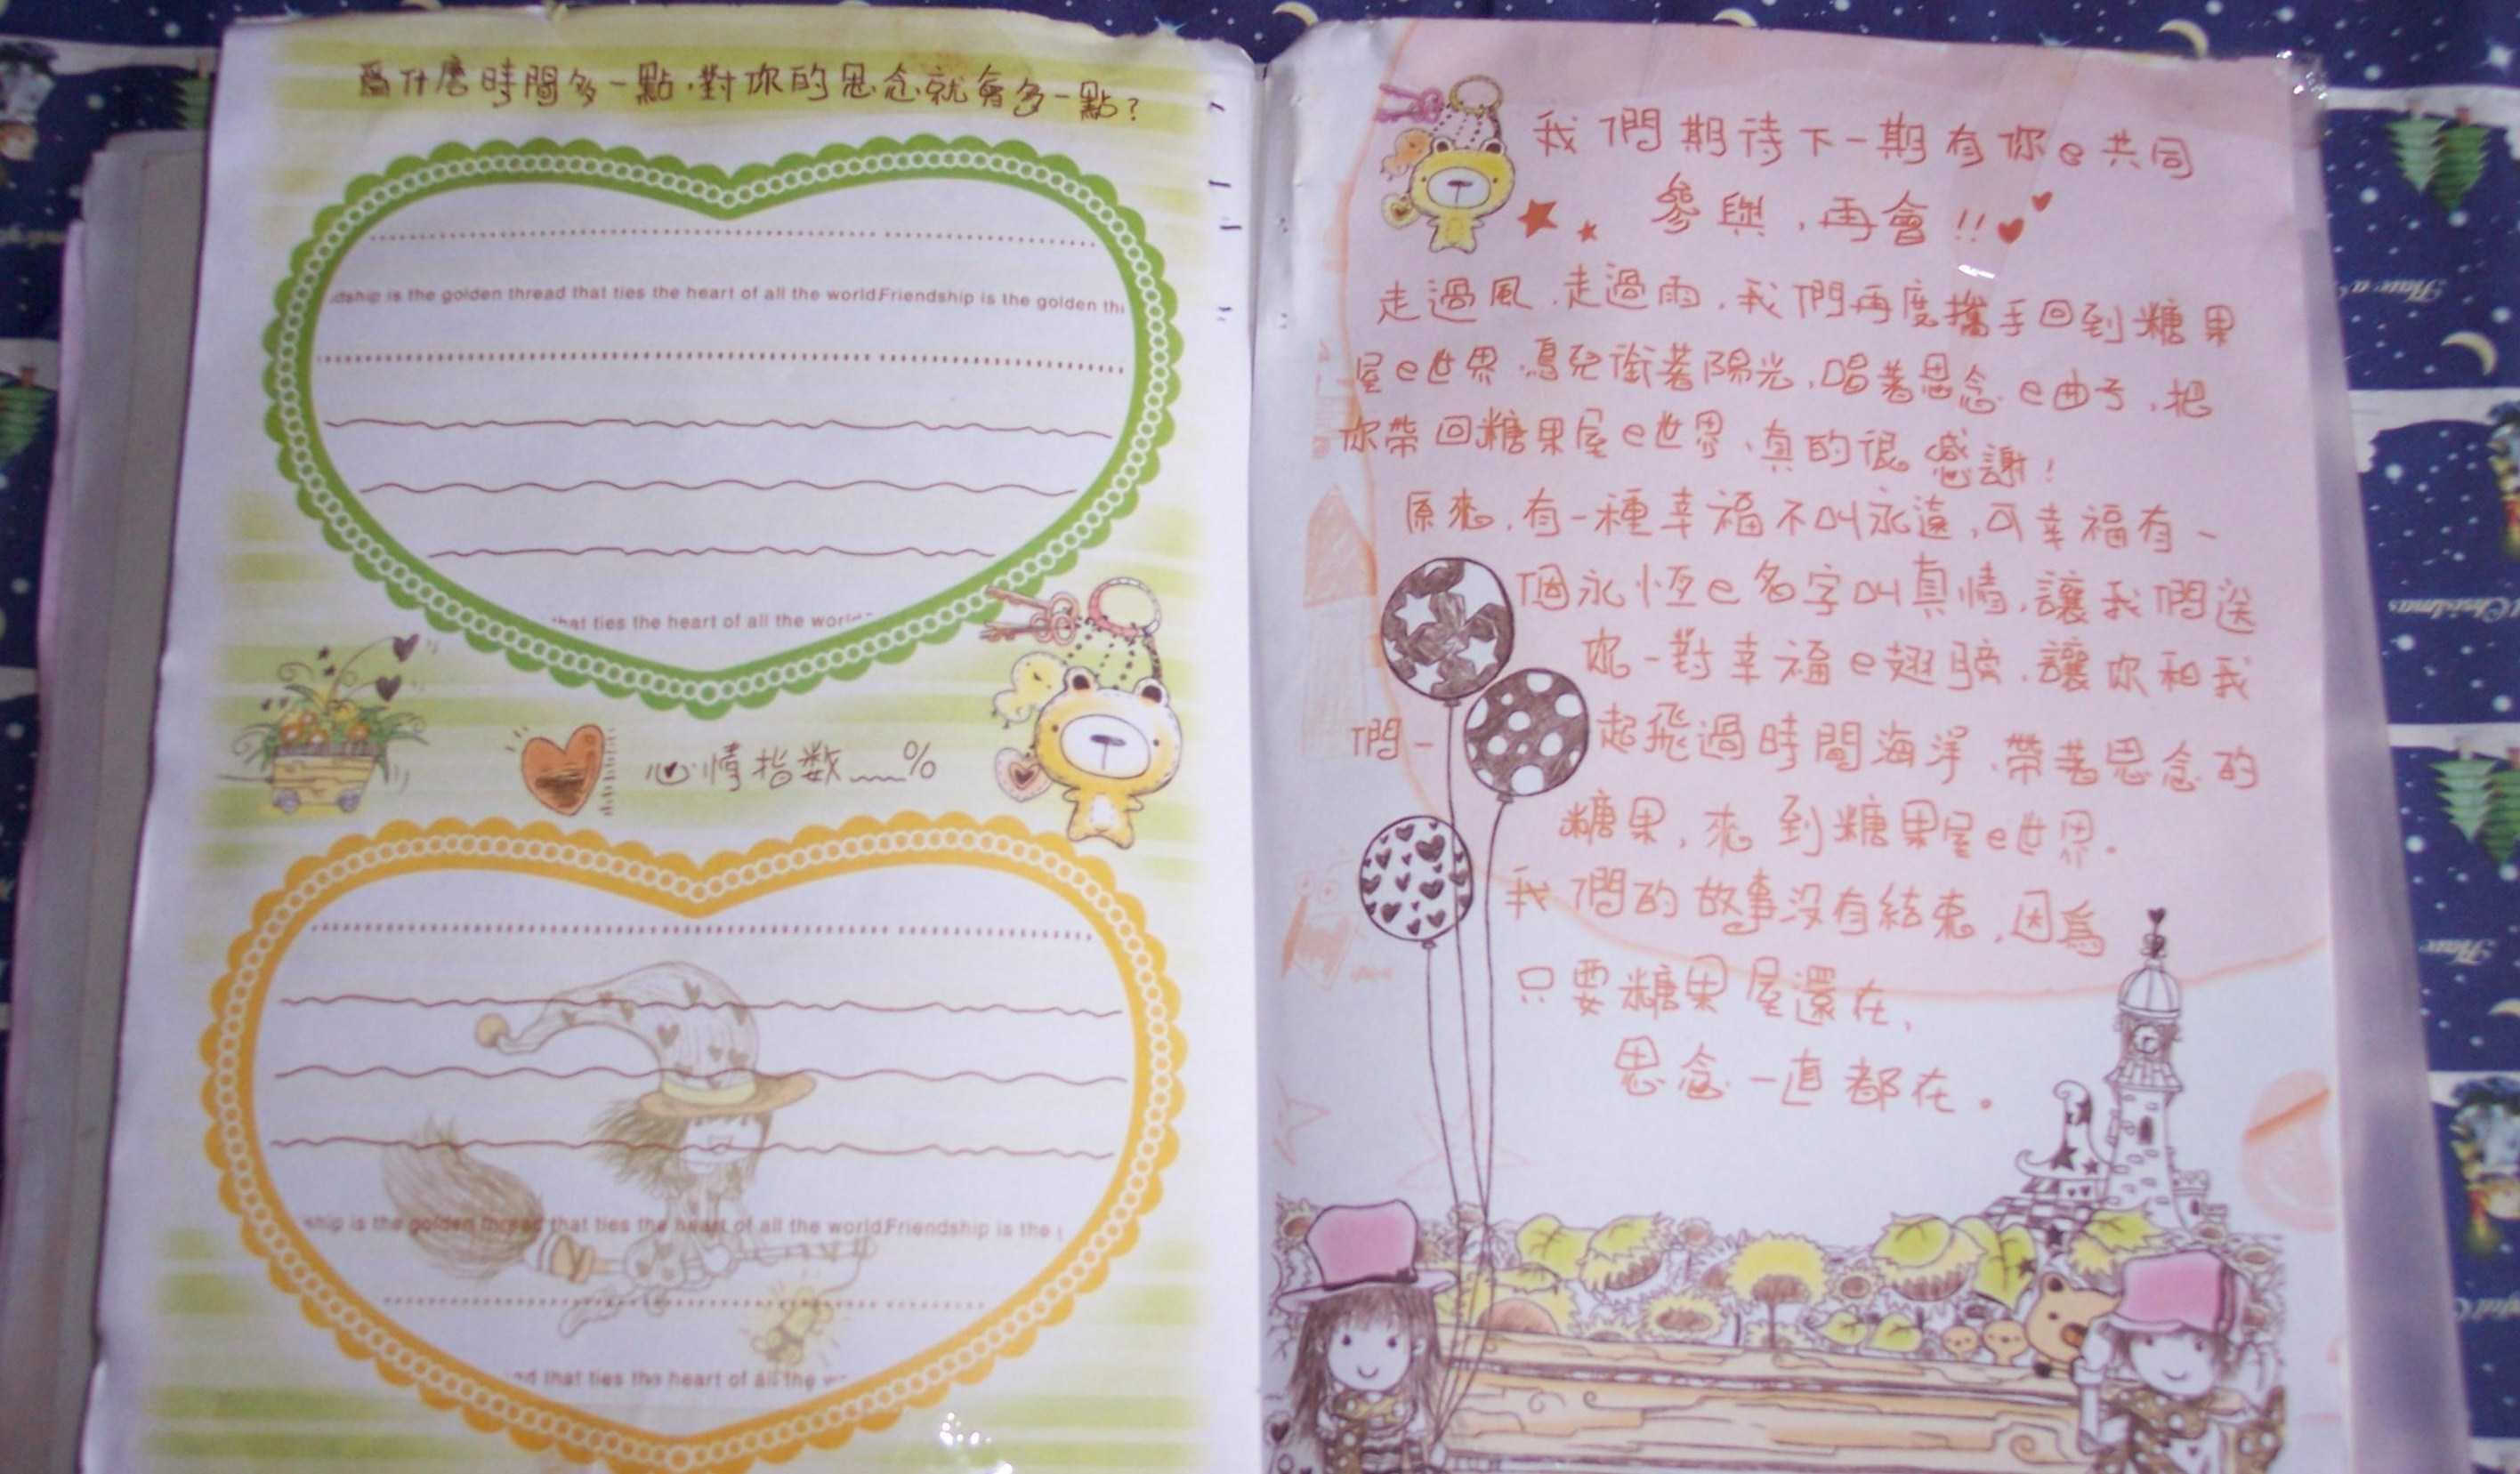 為什麼時間多一點，對你的思念就會多一點？
dship is the golden thread that ties the heart of all the world Friendship is the golden thr
that ties the heart of all the world
心情指數 %
ship is the golden thread that ties the heart of all the world Friendship is the
ad that ties the heart of all the w
我們期待下一期有你e共同
參與，再會!!
走過風，走過雨，我們再度攜手回到糖果
屋e世界，鳥兒銜著陽光，唱著思念e曲子，把
你帶回糖果屋e世界，真的很感謝！
原來，有一種幸福不叫永遠，可幸福有一
個永恆e名字叫真情，讓我們送
妳一對幸福e翅膀，讓你和我
們一起飛過時間海洋，帶著思念的
糖果，來到糖果屋e世界。
我們的故事沒有結束，因為
只要糖果屋還在，
思念一直都在。